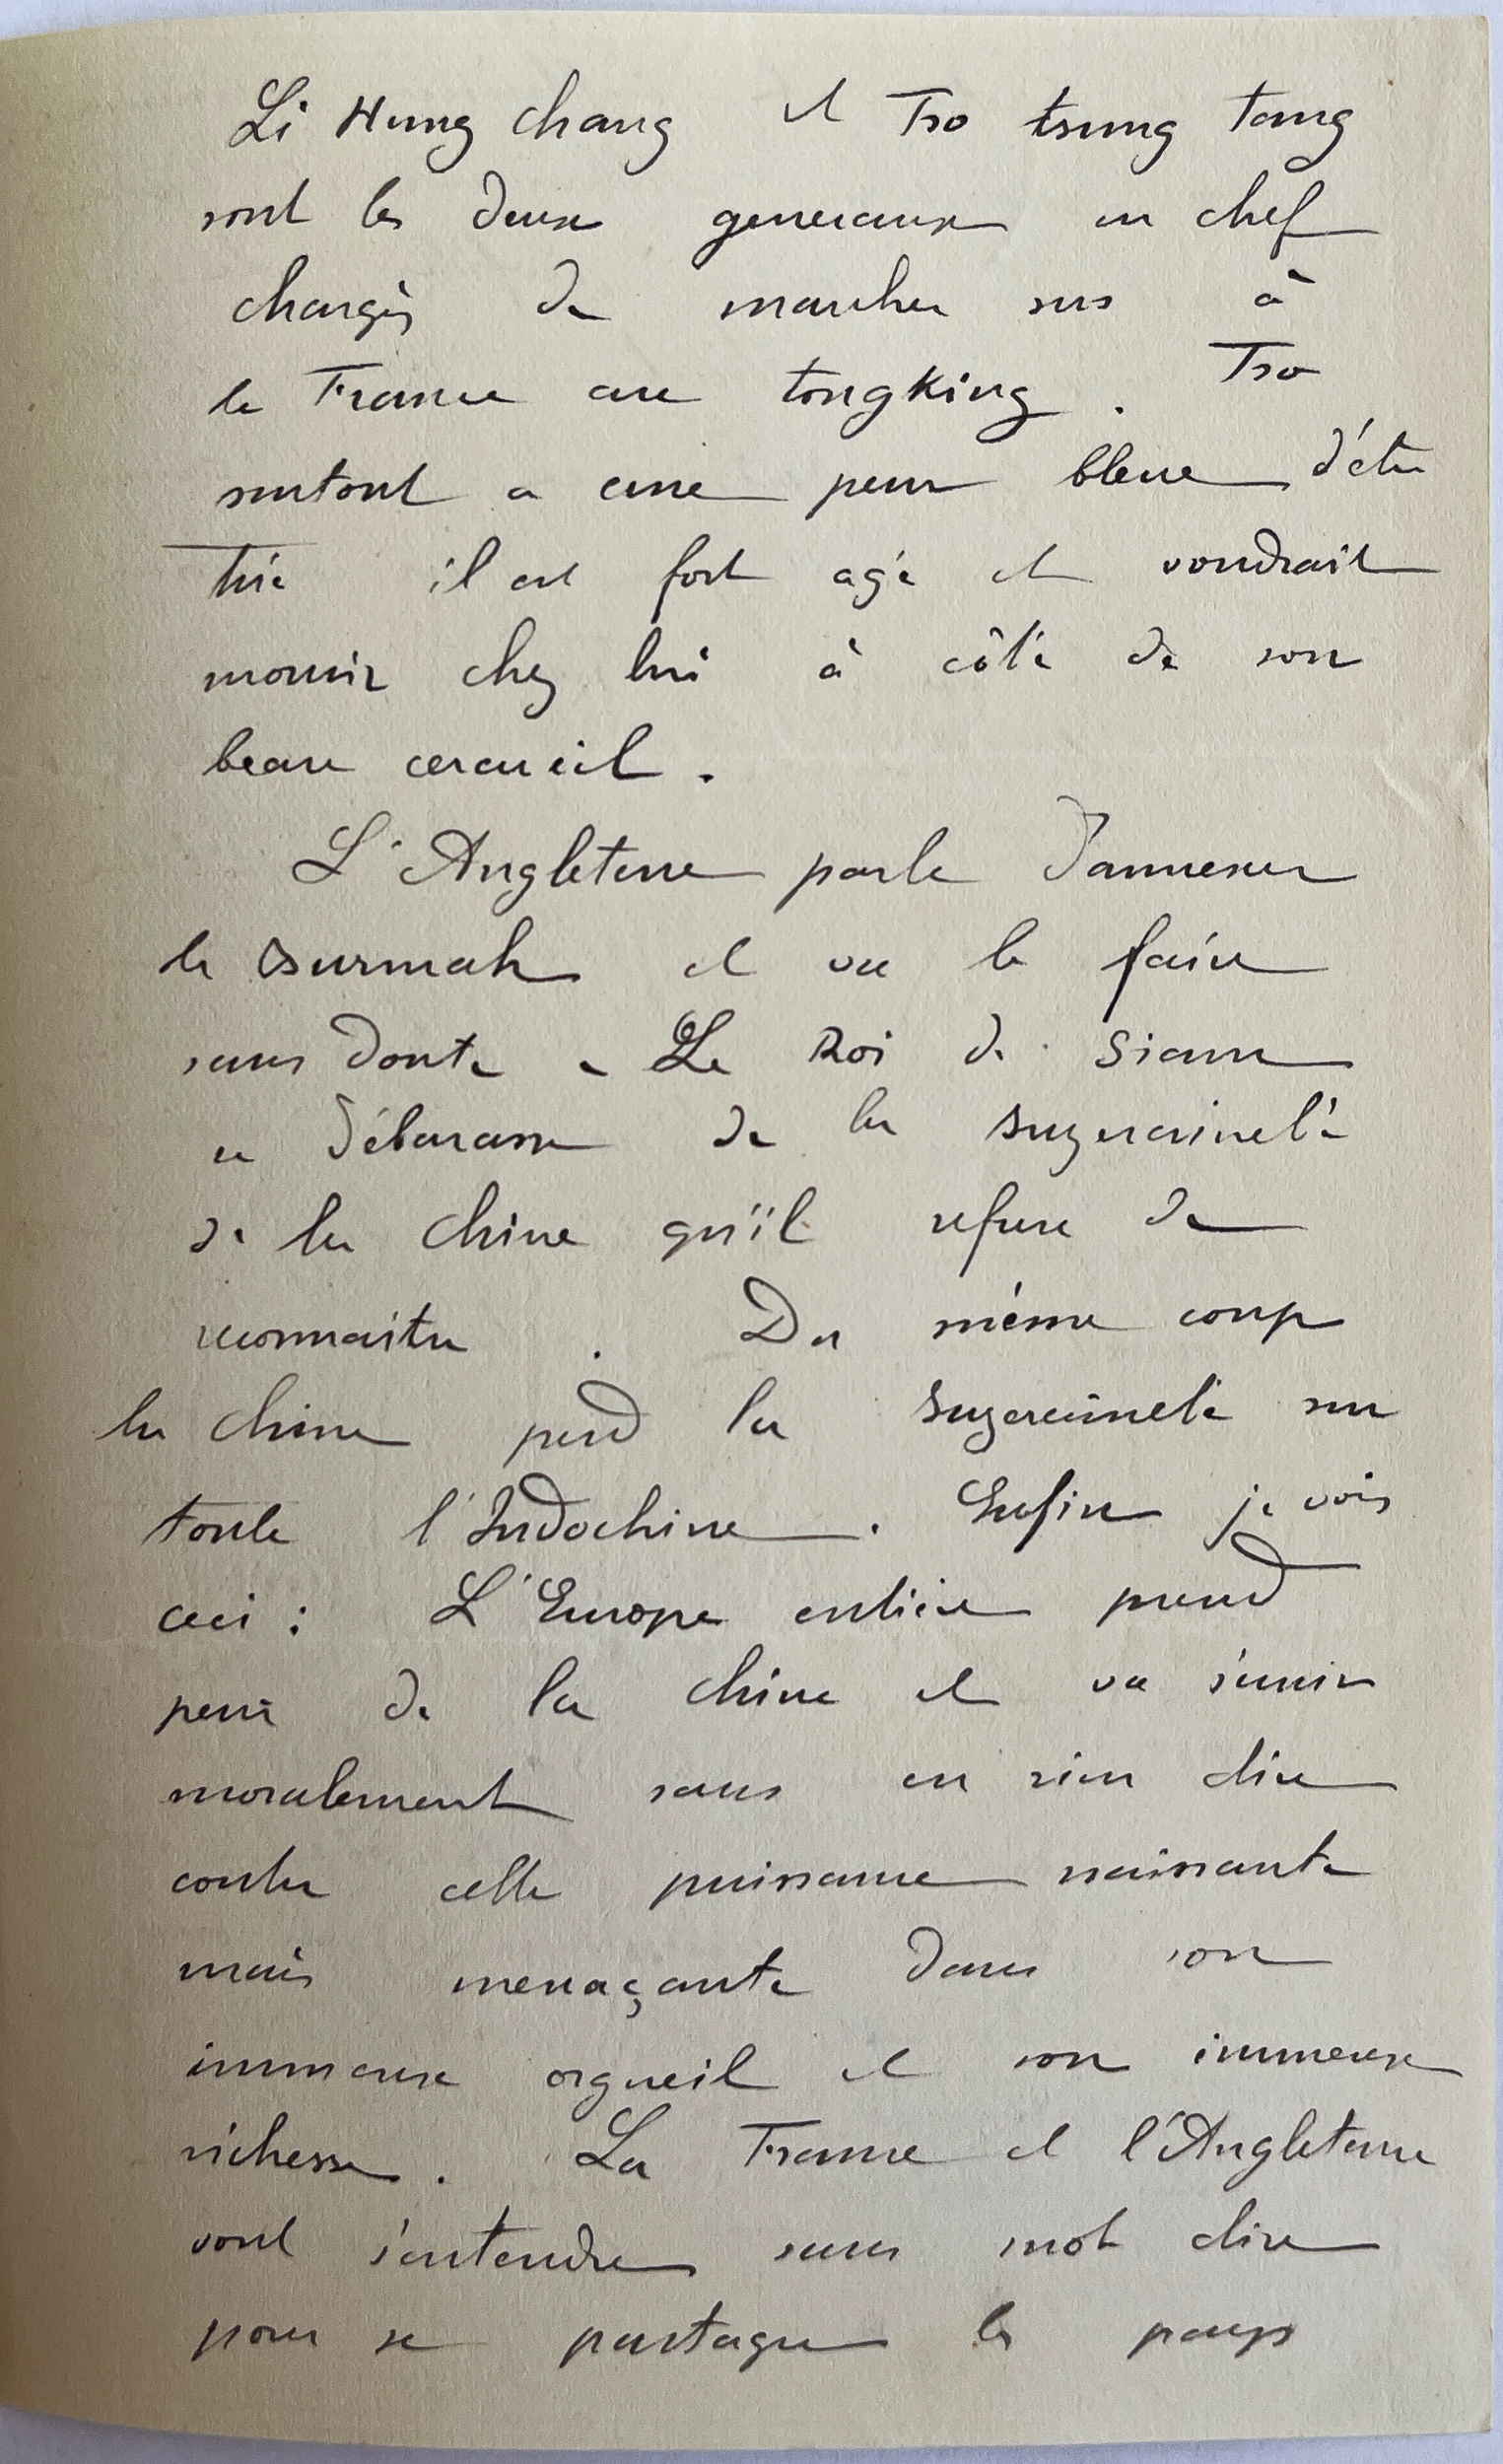 Li Hung Chang et Tso tsung tang
sont les deux generaux en chef
chargés de marcher sus à
la France au tongking. Tso
surtout a une peur bleue d'être
tué il est fort agé et voudrait
mourir chez lui à côté de son
beau cercueil.
L'Angleterre parle d'annexer
le Burmah et va le faire
sans doute - Le Roi de Siam
se débarasse de la suzeraineté
de la Chine qu'il refuse de
reconnaitre. Du même coup
la Chine perd la suzeraineté sur
toute l'Indochine. Enfin je vois
ceci : L'Europe entière prend
peur de la Chine et va s'unir
moralement sans en rien dire
contre cette puissance naissante
mais menaçante dans son
immense orgueil et son immense
richesse. La France et l'Angleterre
vont s'entendre sans mot dire
pour se partager les pays